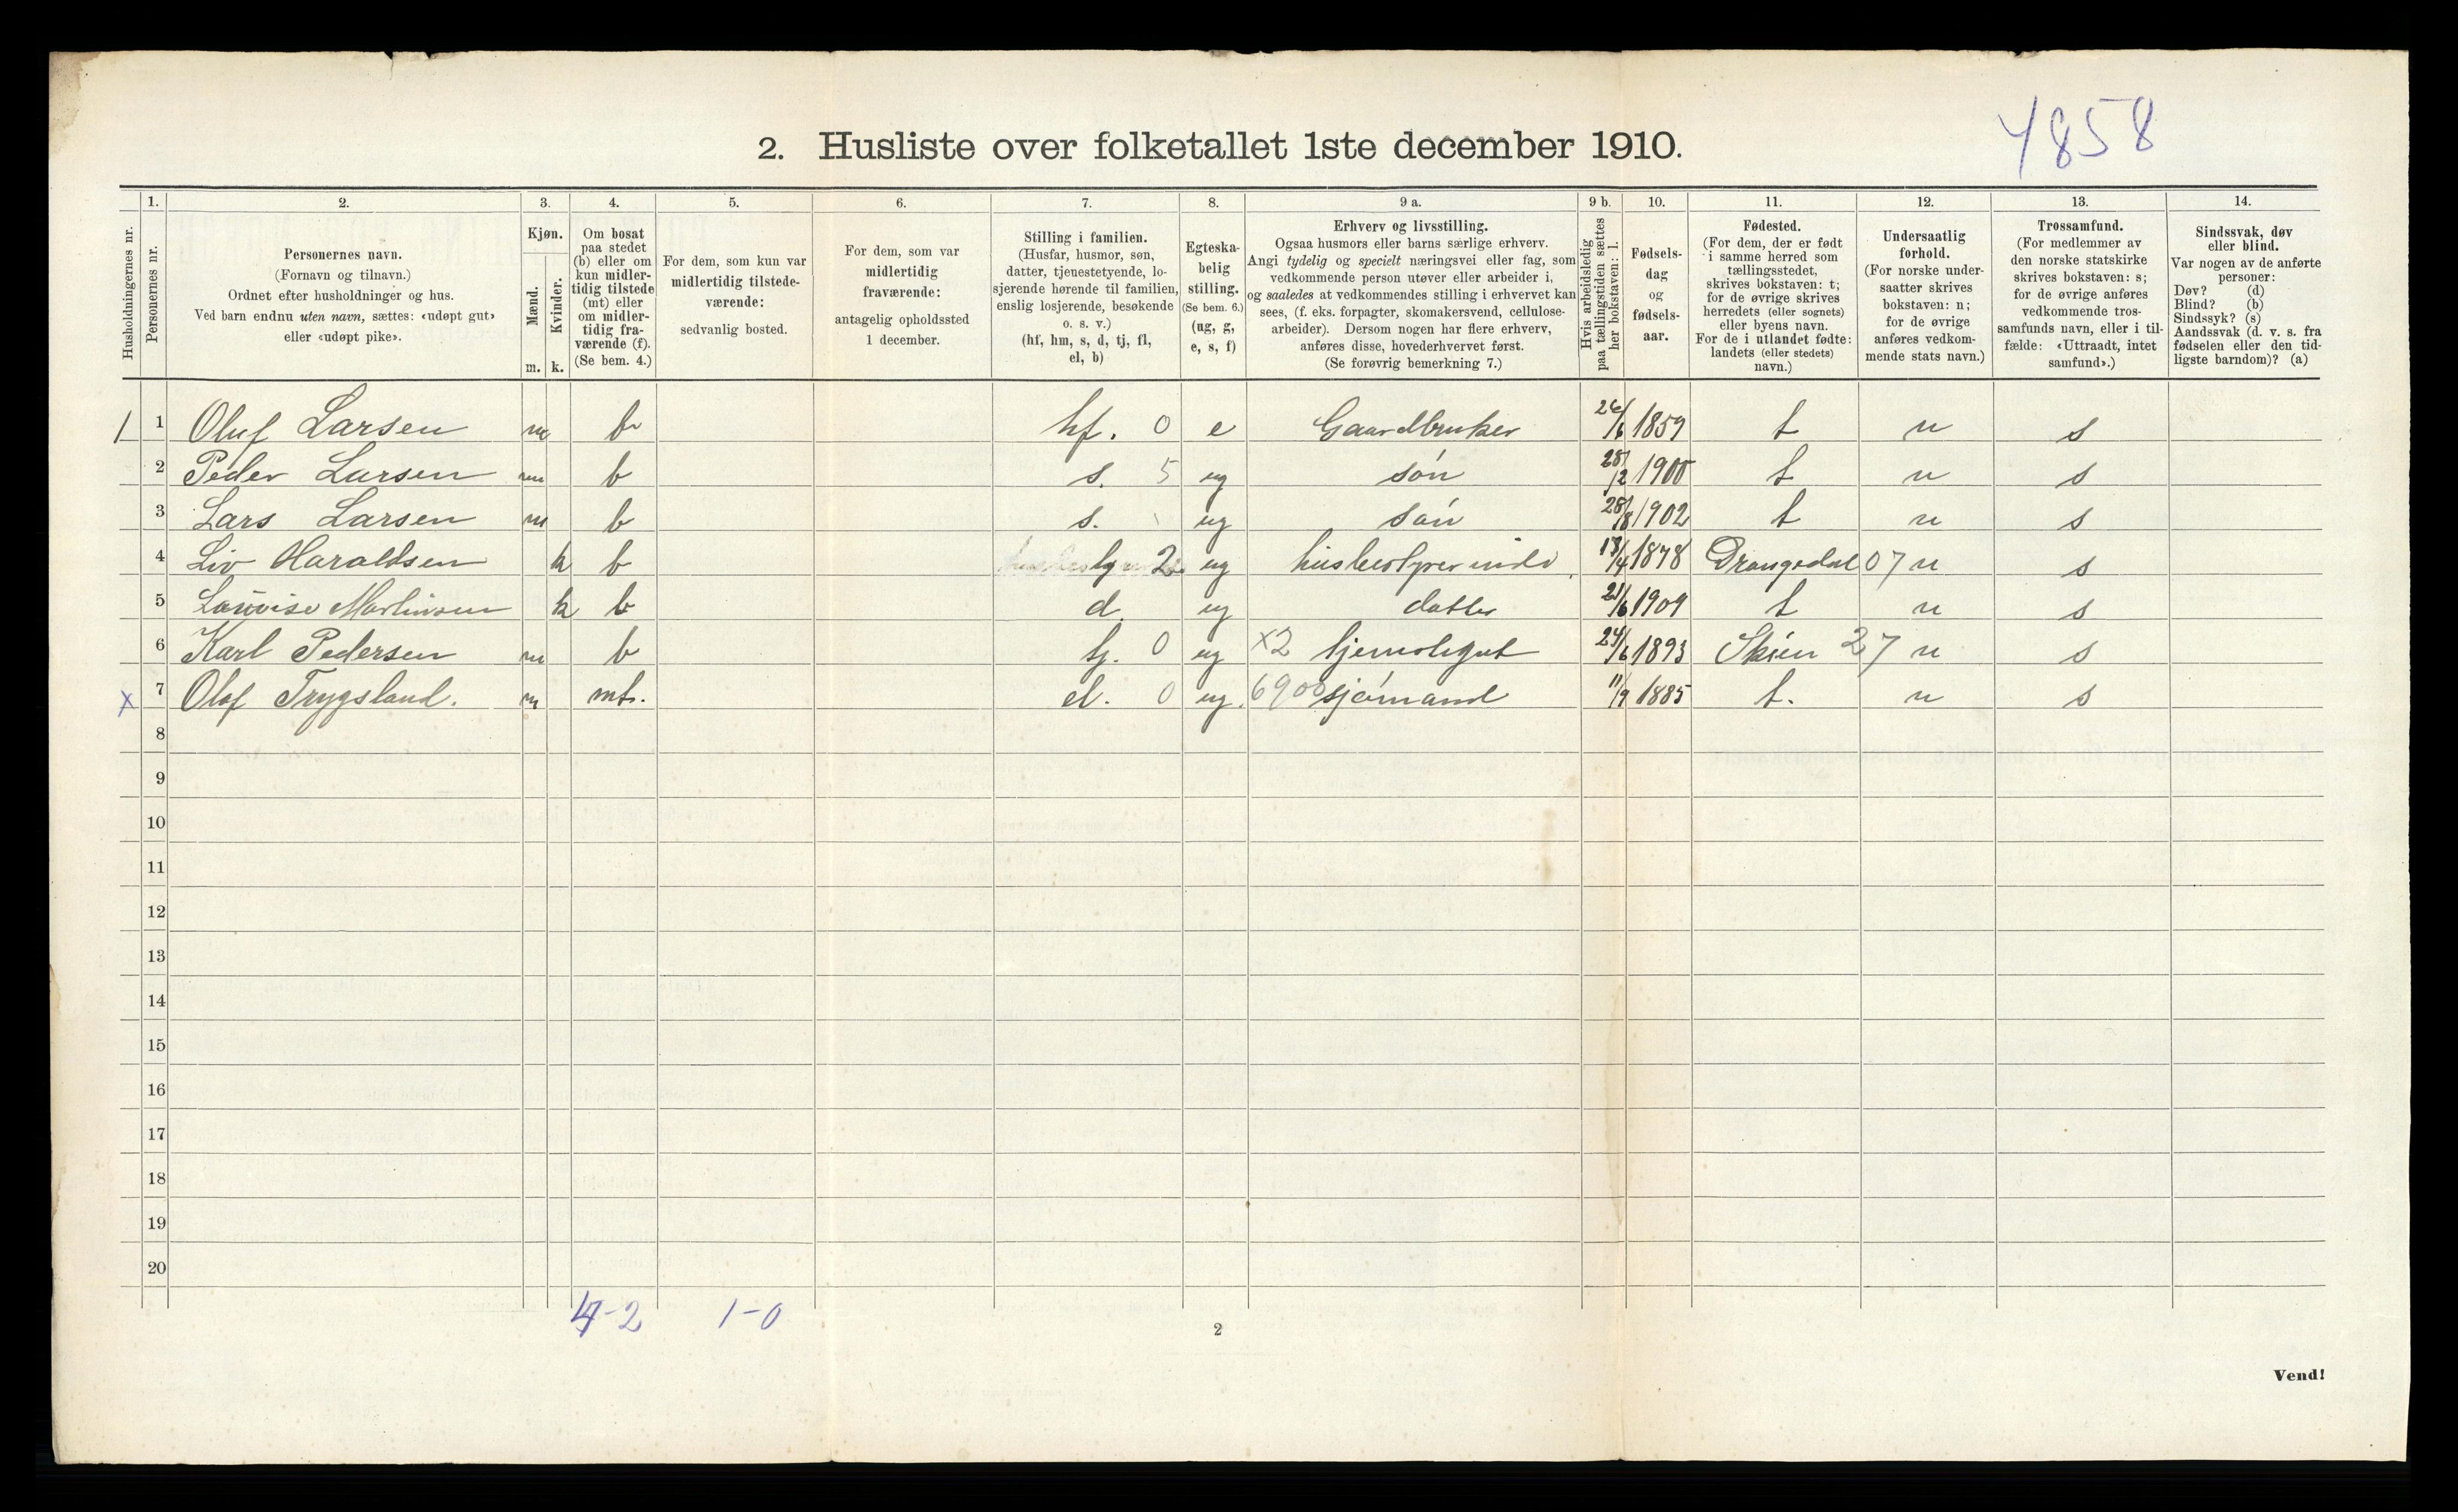 4858
2. Husliste over folketallet 1ste december 1910.
Husholdningernes nr.
1. Personernes nr.
2. Personernes navn.
(Fornavn og tilnavn.)
Ordnet efter husholdninger og hus.
Ved barn endnu uten navn, sættes: «udøpt gut»
eller «udøpt pike».
3. Kjøn.
Mænd. m.
Kvinder. k.
4. Om bosat
paa stedet
(b) eller om
kun midler-
tidig tilstede
(mt) eller
om midler-
tidig fra-
værende (f).
(Se bem. 4.)
5. For dem, som kun var
midlertidig tilstede-
værende:
sedvanlig bosted.
6. For dem, som var
midlertidig
fraværende:
antagelig opholdssted
1 december.
7. Stilling i familien.
(Husfar, husmor, søn,
datter, tjenestetyende, lo-
sjerende hørende til familien,
enslig losjerende, besøkende
o. s. v.)
(hf, hm, s, d, tj, fl,
el, b)
8. Egteska-
belig
stilling.
(Se bem. 6.)
(ug, g,
e, s, f)
9 a. Erhverv og livsstilling.
Ogsaa husmors eller barns særlige erhverv.
Angi tydelig og specielt næringsvei eller fag, som
vedkommende person utøver eller arbeider i,
og saaledes at vedkommendes stilling i erhvervet kan
sees, (f. eks. forpagter, skomakersvend, cellulose-
arbeider). Dersom nogen har flere erhverv,
anføres disse, hovederhvervet først.
(Se forøvrig bemerkning 7.)
9 b. Hvis arbeidsledig
paa tællingstiden sættes
her bokstaven: l.
10. Fødsels-
dag
og
fødsels-
aar.
11. Fødested.
(For dem, der er født
i samme herred som
tællingsstedet,
skrives bokstaven: t;
for de øvrige skrives
herredets (eller sognets)
eller byens navn.
For de i utlandet fødte:
landets (eller stedets)
navn.)
12. Undersaatlig
forhold.
(For norske under-
saatter skrives
bokstaven: n;
for de øvrige
anføres vedkom-
mende stats navn.)
13. Trossamfund.
(For medlemmer av
den norske statskirke
skrives bokstaven: s;
for de øvrige anføres
vedkommende tros-
samfunds navn, eller i til-
fælde: «Uttraadt, intet
samfund».)
14. Sindssvak, døv
eller blind.
Var nogen av de anførte
personer:
Døv? (d)
Blind? (b)
Sindssyk? (s)
Aandssvak (d. v. s. fra
fødselen eller den tid-
ligste barndom)? (a)
1 1 Oluf Larsen m b hf. 0 e Gaardbruker 26/6 1859 t n s
2 Peder Larsen m b s. 5 ug søn 28/2 1900 t n s
3 Lars Larsen m b s. ug søn 28/8 1902 t n s
4 Liv Haraldsen k b 2 ug husbestyrerinde. 13/4 1878 Drangedal 07 n s
5 Lovise Martinsen k b d. ug datter 21/6 1909 t n s
6 Karl Pedersen m b tj. 0 ug x2 tjenestegut 24/6 1893 Skien 27 n s
x 7 Olaf Trygsland. m mt. el. 0 ug. 6900 sjømand 11/9 1885 t. n s
8
9
10
11
12
13
14
15
16
17
18
19
20
4-2 1-0
2
Vend!